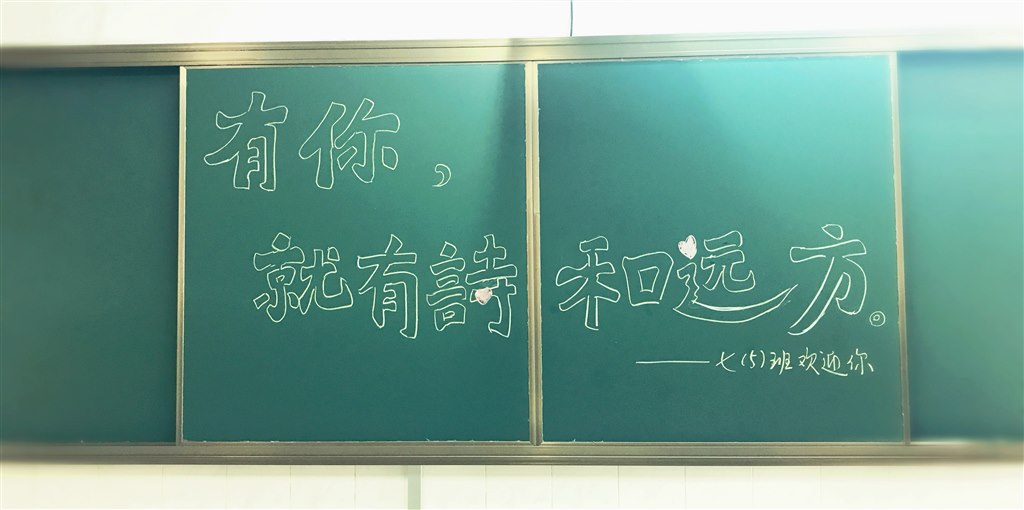 有你，
就有詩和远方。
——七(5)班欢迎你